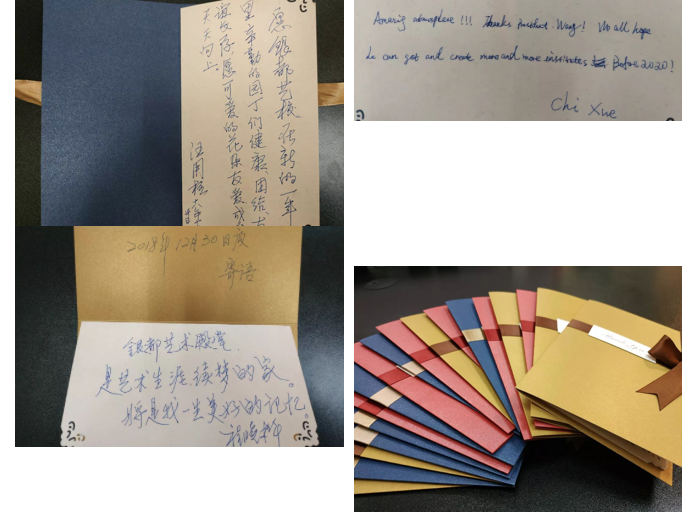 愿银都艺校在新的一年
里辛勤的园丁们健康、团结、
谊长存.愿可爱的花朵友爱成
天天向上.
Amazing atmosphere !!! Thanks president Wang! We all hope
we can get and create more and more institutes Before 2020!
Chi Xue
2018年12月30日夜
寄语
银都艺术殿堂
是艺术生涯续梦的家。
将是我一生美好的记忆。